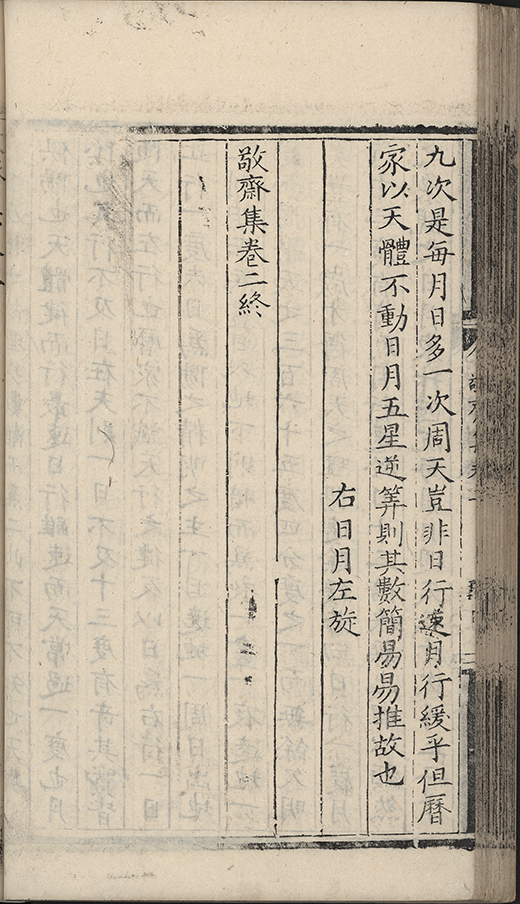 九次是每月日多一次周天豈非日行速月行緩乎但曆
家以天體不動日月五星逆筭則其數簡易易推故也
右日月左旋
敬齋集卷二終